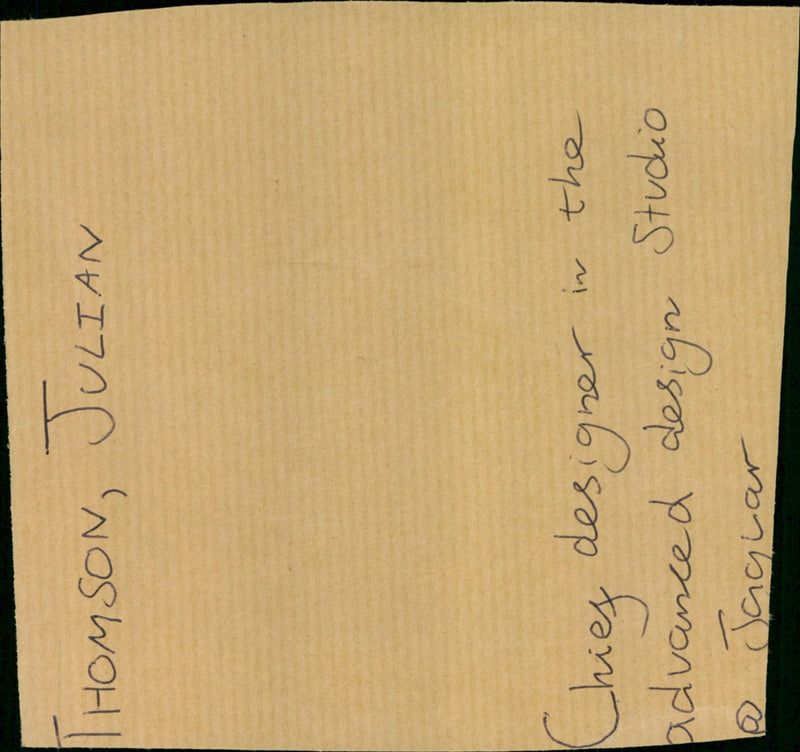 THOMSON, JULIAN
Chief designer in the
advanced design Studio
@ Jaguar